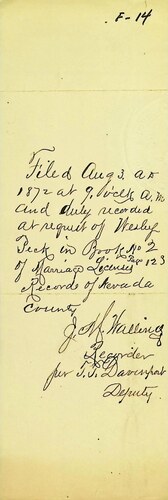 F-14
Filed Aug 3. AD
1872 at 9. O'clk A.M
and duly recorded
at request of Wesley
Peck in Book No 2
of Marriage Licenses Page 123
Records of Nevada
County
J. M. Walling
Recorder
per T. T. Davenport
Deputy.